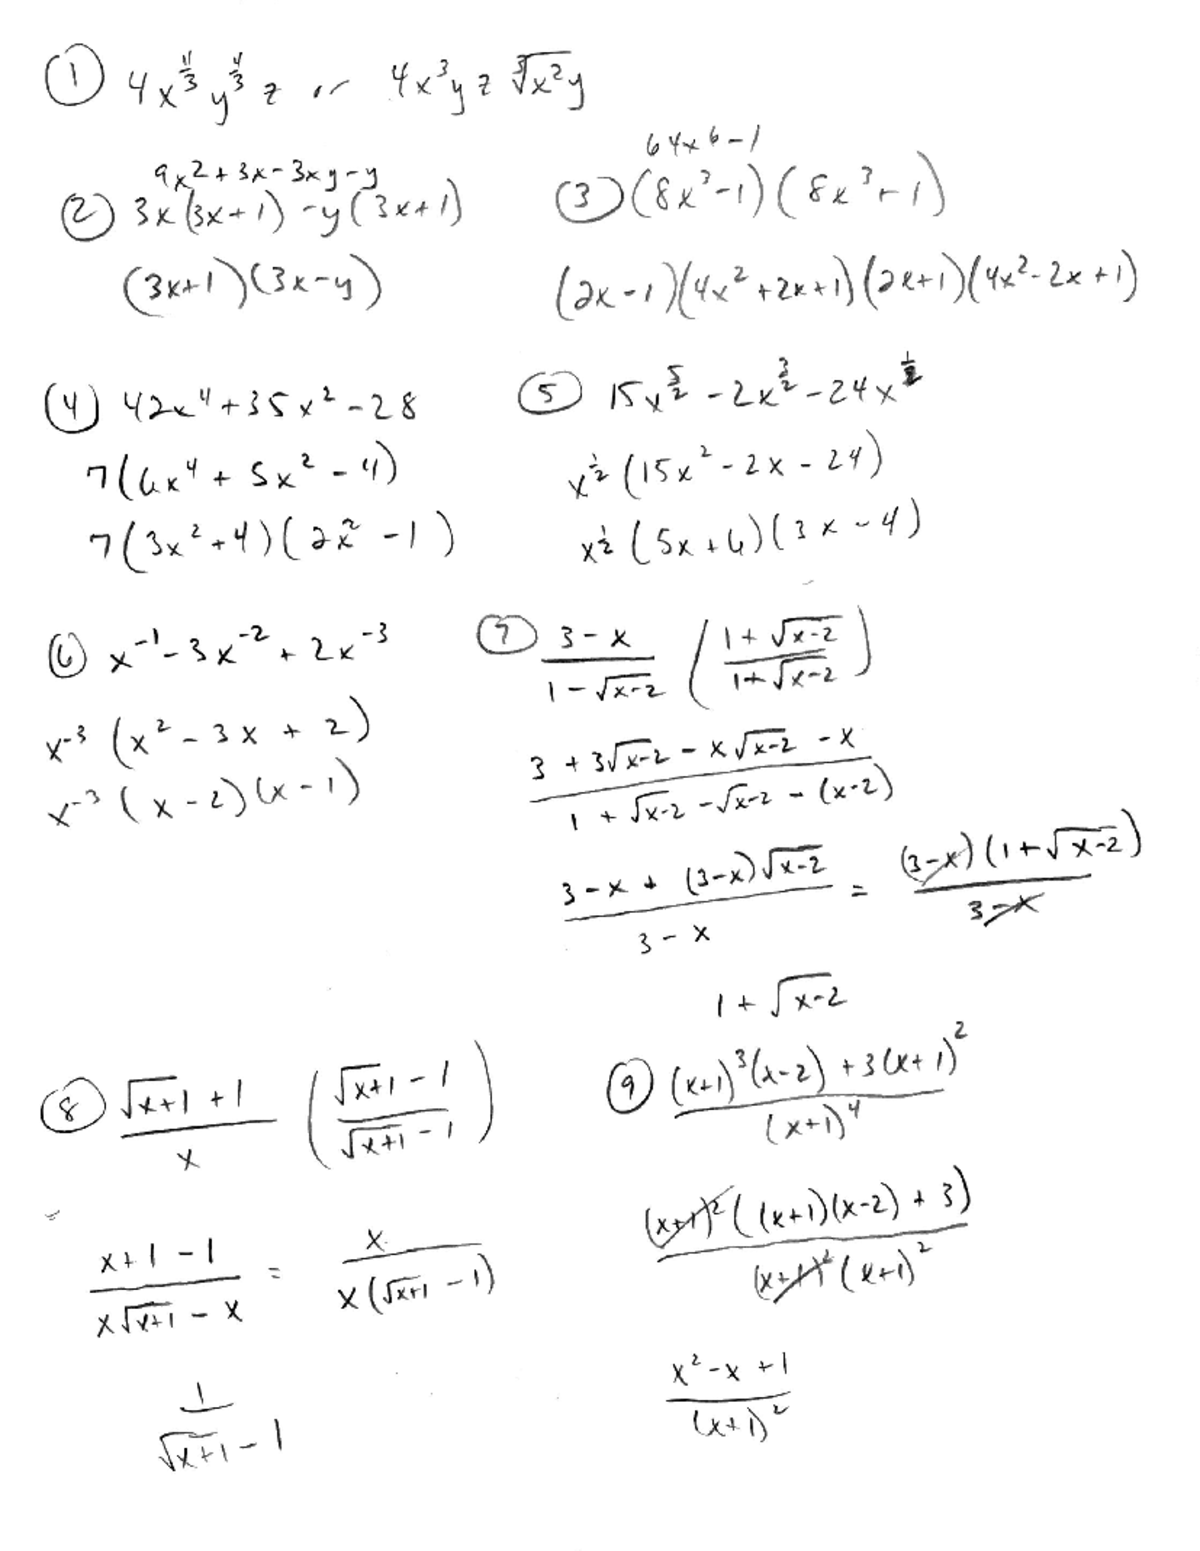 ① 4x^{11/3} y^{4/3} z or 4x³yz ∛(x²y)
9x2 + 3x - 3xy - y
② 3x(3x+1) - y(3x+1)
(3x+1)(3x-y)
64x⁶-1
③ (8x³-1)(8x³+1)
(2x-1)(4x²+2x+1)(2x+1)(4x²-2x+1)
④ 42x⁴+35x²-28
7(6x⁴+5x²-4)
7(3x²+4)(2x²-1)
⑤ 15x^{5/2} - 2x^{3/2} - 24x^{1/2}
x^{1/2}(15x²-2x-24)
x^{1/2}(5x+6)(3x-4)
⑥ x⁻¹-3x⁻²+2x⁻³
x⁻³(x²-3x+2)
x⁻³(x-2)(x-1)
⑦ (3-x)/(1-√(x-2)) ((1+√(x-2))/(1+√(x-2)))
(3+3√(x-2)-x√(x-2)-x)/(1+√(x-2)-√(x-2)-(x-2))
(3-x+(3-x)√(x-2))/(3-x) = ((3-x)(1+√(x-2)))/(3-x)
1+√(x-2)
⑧ (√(x+1)+1)/x ((√(x+1)-1)/(√(x+1)-1))
= (x+1-1)/(x√(x+1)-x) = x/(x(√(x+1)-1))
1/(√(x+1)-1)
⑨ ((x+1)³(x-2)+3(x+1)²)/(x+1)⁴
((x+1)²((x+1)(x-2)+3))/((x+1)²(x+1)²)
(x²-x+1)/(x+1)²